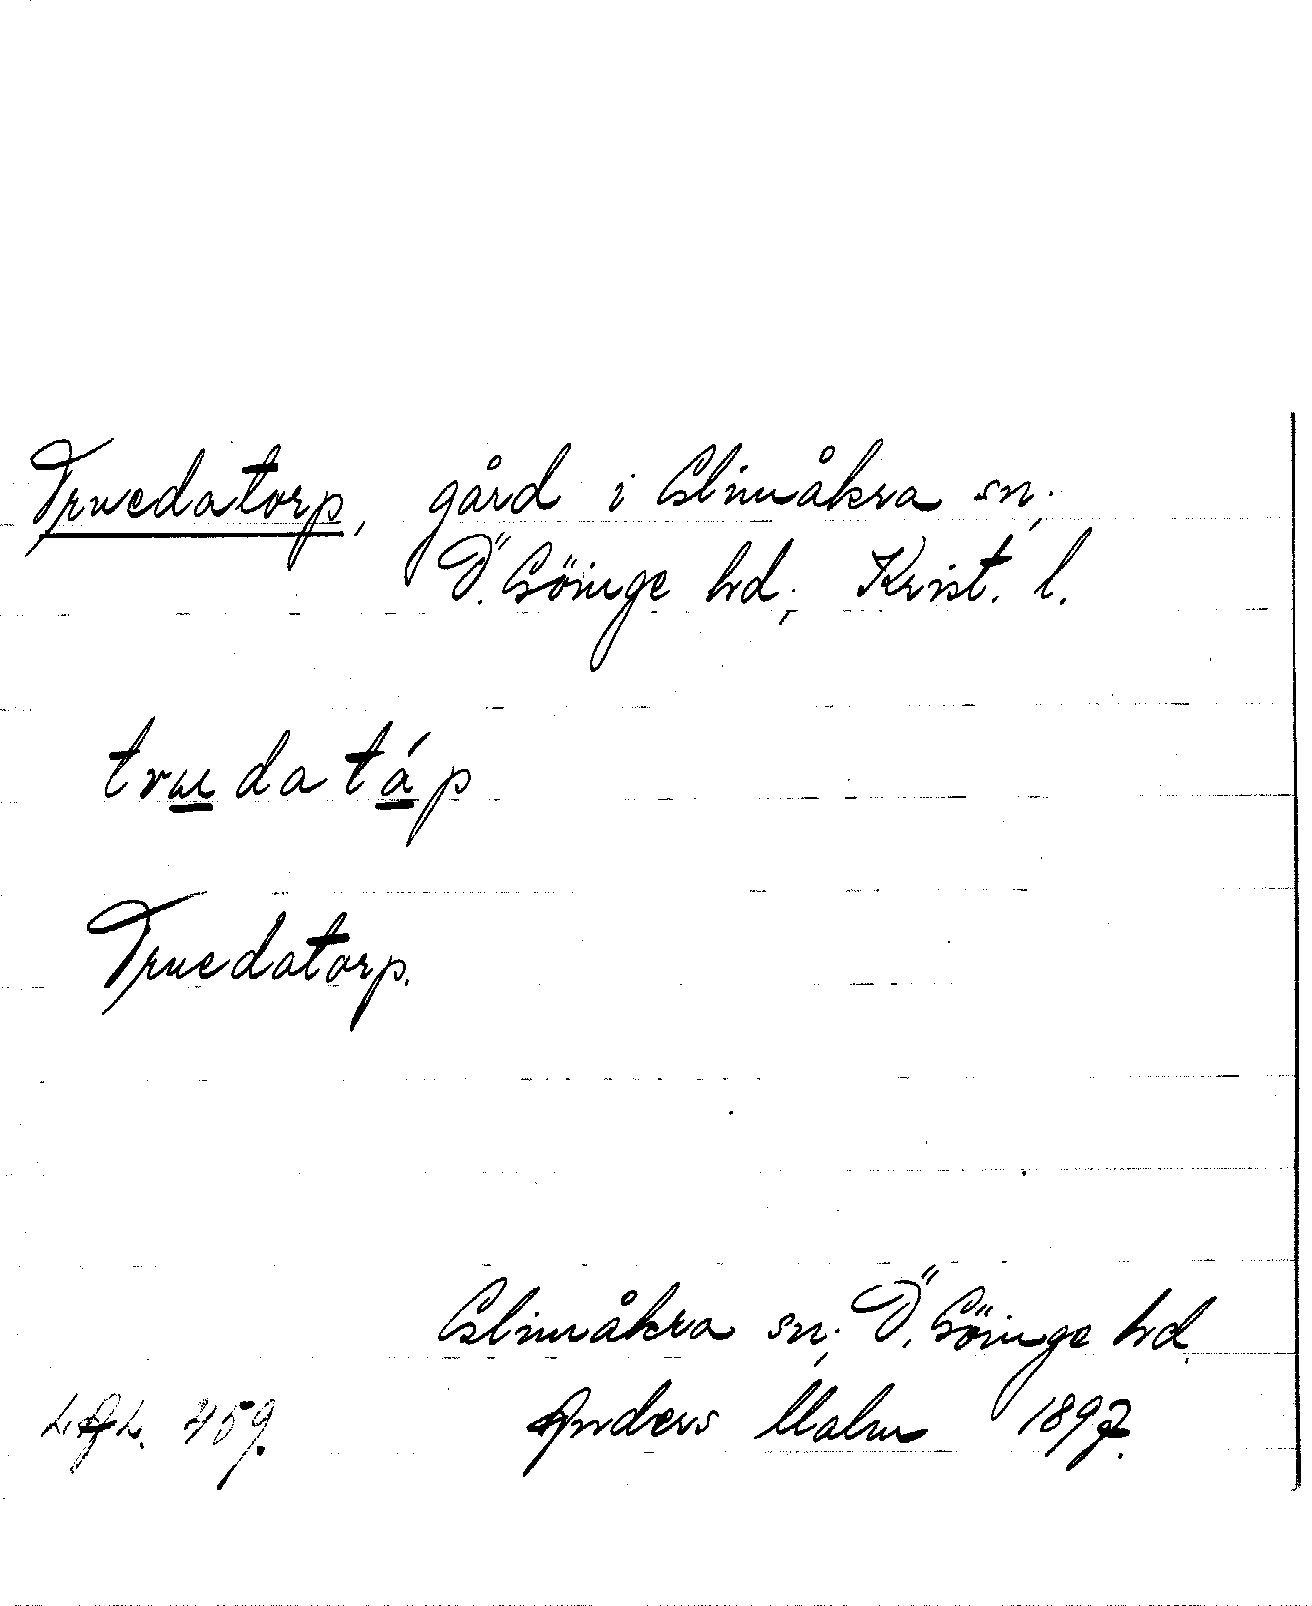 Truedatorp, gård i Glimåkra sn;
Ö. Göinge hd; Krist. l.
truedatáp
Truedatorp.
Glimåkra sn; Ö. Göinge hd.
459. Anders Malm 1897.